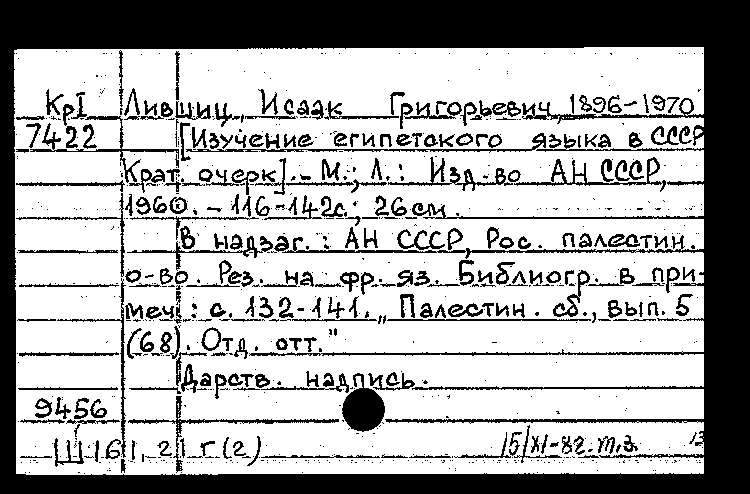 КрI Лившиц, Исаак Григорьевич, 1896-1970
7422 [Изучение египетского языка в СССР
Крат. очерк]. - М.; Л.: Изд-во АН СССР,
1960. - 116-142с.; 26см.
В надзаг.: АН СССР, Рос. палестин.
о-во. Рез. на фр. яз. Библиогр. в при-
меч.: с. 132-141. „Палестин. сб., вып. 5
(68). Отд. отт."
Дарств. надпись.
9456
Ш 61, 21 г (2) 15/XI-82. т.з. 13